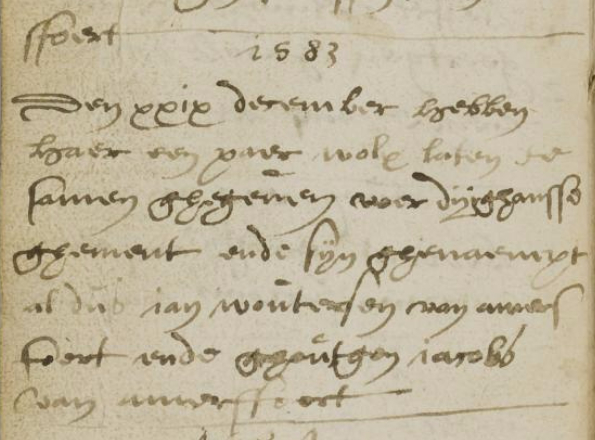 ffoert
1583
Den xxix december hebben
haer een paer volx laten te
samen ghegeuen voer dye gansse
ghement ende syn ghenaempt
al dus ian woutersen van amers
foert ende iacobs
van amerffoert